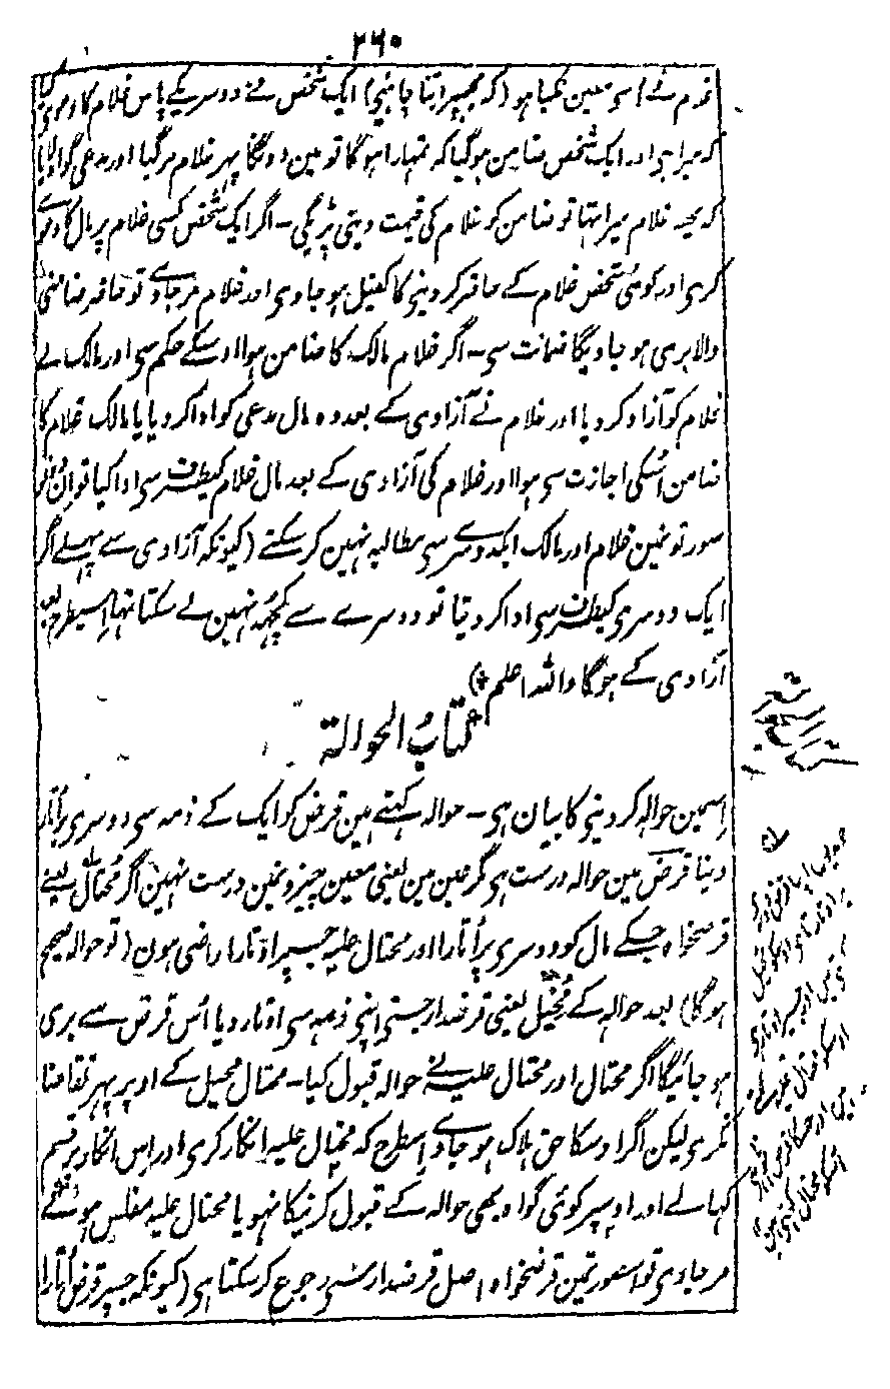 ۲۶۰
خدم نے اسی معین کیا ہو (کہ مجھپر اتنا چاہئیے) ایک شخص نے دوسریکے پاس غلام کا دعویٰ کیا
کہ میرا ہی اور ایک شخص ضامن ہوگیا کہ تمہارا ہوگا تو مین دونگا پہر غلام مرگیا اور مدعی گواہ لایا
کہ یہہ غلام میرا تہا تو ضامن کو غلام کی قیمت دینی پڑیگی - اگر ایک شخص کسی غلام پر مال کا دعوے
کری اور کوئی شخص غلام کے حاضر کردینی کا کفیل ہوجاوی اور غلام مرجاوے تو حاضر ضامنی
والا بری ہوجاویگا ضمانت سی - اگر غلام مالک کا ضامن ہوا اوسکے حکم سی اور مالک نے
غلام کو آزاد کردیا اور غلام نے آزادی کے بعد وہ مال مدعی کو ادا کردیا یا مالک غلام کا
ضامن اُسکی اجازت سی ہوا اور غلام کی آزادی کے بعد مال غلام کیطرف سی ادا کیا تو ان دونو
صورتونمین غلام اور مالک ایکدوسرے سی مطالبہ نہین کرسکتے (کیونکہ آزادی سے پہلے اگر
ایک دوسری کیطرف سی ادا کردیتا تو دوسرے سے کچھہ نہین لے سکتا تہا اِسیطرح بعد
آزادی کے ہوگا واللہ اعلم *)
کتابُ الحوالۃ
اِسمین حوالہ کردینی کا بیان ہی - حوالہ کہتے ہین قرض کو ایک کے ذمہ سی دوسری پر اُتار
دینا قرض مین حوالہ درست ہی مگر عین مین یعنی معین چیزونمین درست نہین اگر مُحتال یعنے
قرضخواہ جسکے مال کو دوسری پر اُتارا اور محتال علیہ جسپر اوتارا راضی ہون (تو حوالہ صحیح
ہوگا) بعد حوالہ کے مُحیل یعنی قرضدار جسنی اپنی ذمہ سی اوتار دیا اُس قرض سے بری
ہوجائیگا اگر محتال اور محتال علیہ نے حوالہ قبول کیا - محتال محیل کے اوپر پہر تقاضا
نکری لیکن اگر اوسکا حق ہلاک ہوجاوے اِسطرح کہ محتال علیہ انکار کری اور اِس انکار پر قسم
کہالے اور اوسپر کوئی گواہ بھی حوالہ کے قبول کرنیکا نہو یا محتال علیہ مفلس ہوکے
مرجاوی تو اِسصورتمین قرضخواہ اصل قرضدار سی رجوع کرسکتا ہی (کیونکہ جسپر قرض اُتارا